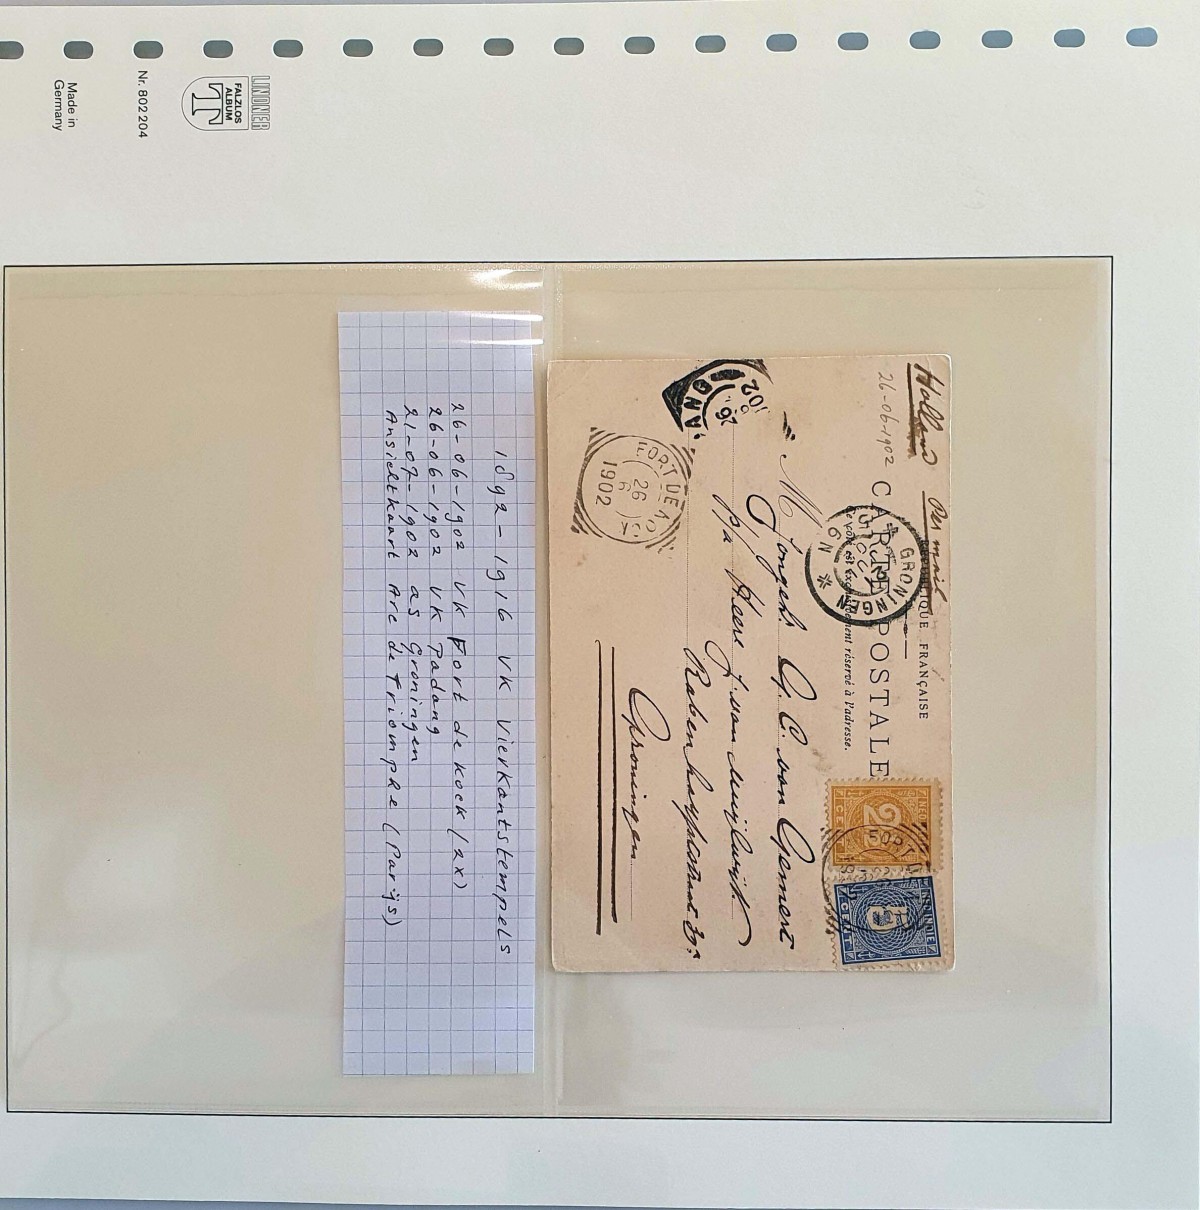 LINDNER
FALZLOS
ALBUM
T
Nr. 802 204
Made in
Germany
Holland Per mail
RÉPUBLIQUE FRANÇAISE
26-06-1902
CARTE POSTALE
Ce côté est exclusivement réservé à l'adresse.
GRONINGEN
6 N
NED
2
CENT
INDIE
CENT
FORT D
M Jongeh. G. C. van Gemert
p/a Heere J. van Muijlwijk
Groningen
ANG
26
902
FORT DE KO
26
6
1902
1892-1916 VK Vierkantstempels
26-06-1902 VK Fort de Kock (2x)
26-06-1902 VK Padang
21-07-1902 as Groningen
Ansichtkaart Arc de Triomphe (Parijs)